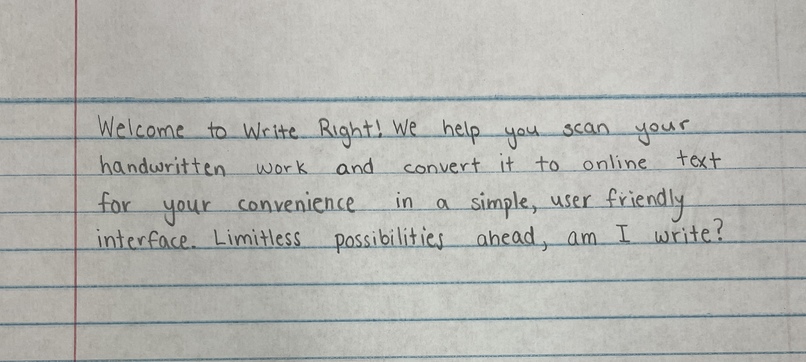 Welcome to Write Right! We help you scan your
handwritten work and convert it to online text
for your convenience in a simple, user friendly
interface. Limitless possibilities ahead, am I write?